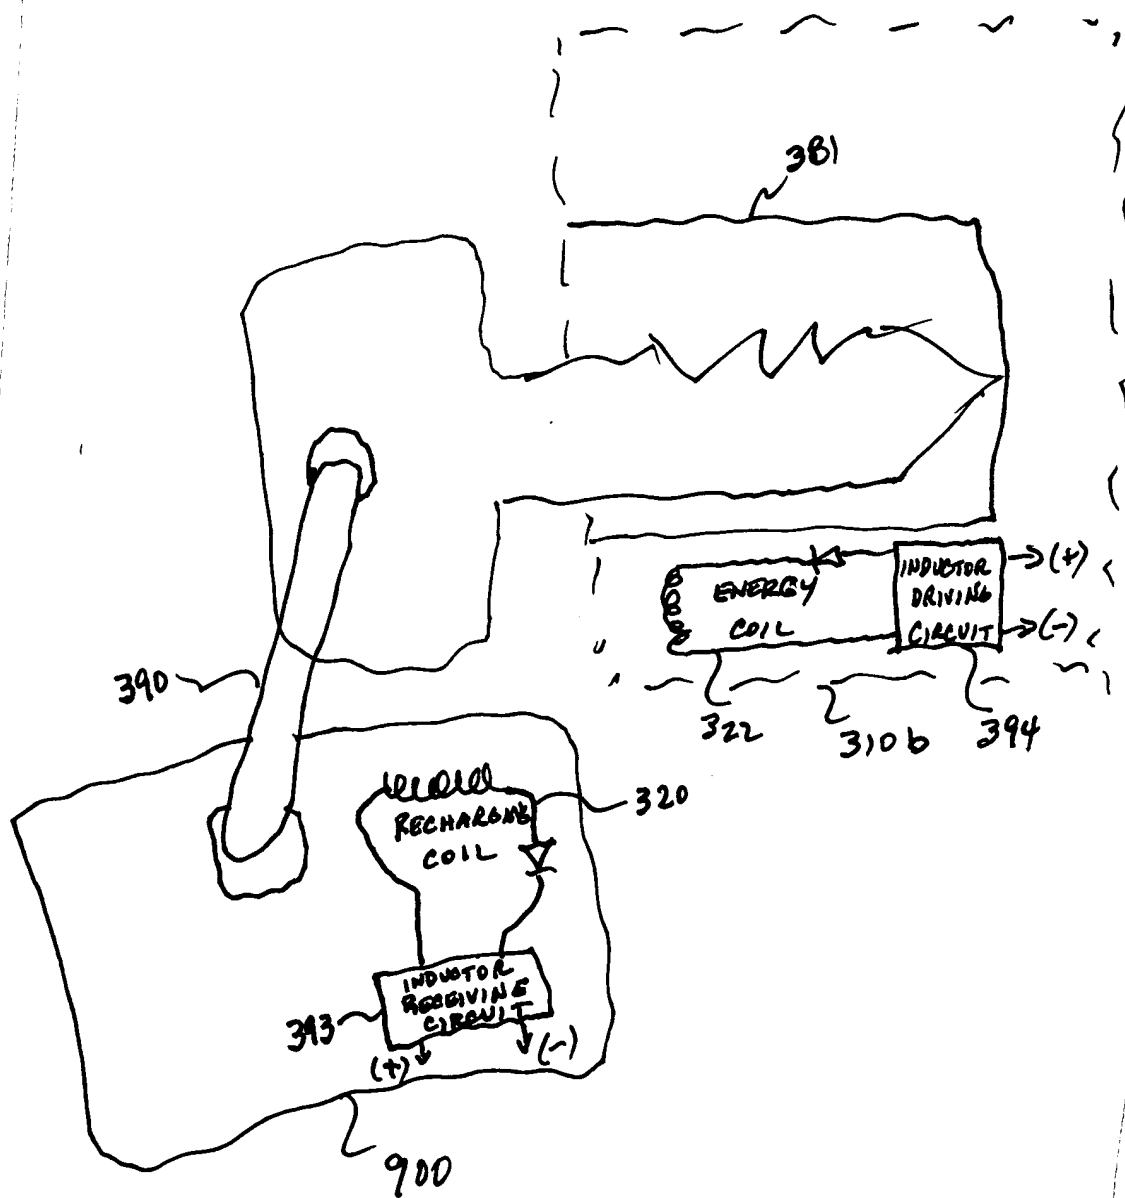 381
ENERGY
COIL
INDUCTOR
DRIVING
CIRCUIT
(+)
(-)
390
322
310b
394
RECHARGING
COIL
320
INDUCTOR
RECEIVING
CIRCUIT
393
(+)
(-)
900